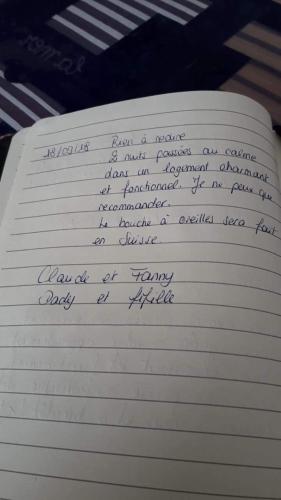 18/09/18 Rien à redire
2 nuits passées au calme
dans un logement charmant
et fonctionnel. Je ne peux que
recommander.
Le bouche à oreilles sera fait
en Suisse.
Claude et Fanny
Dady et fifille